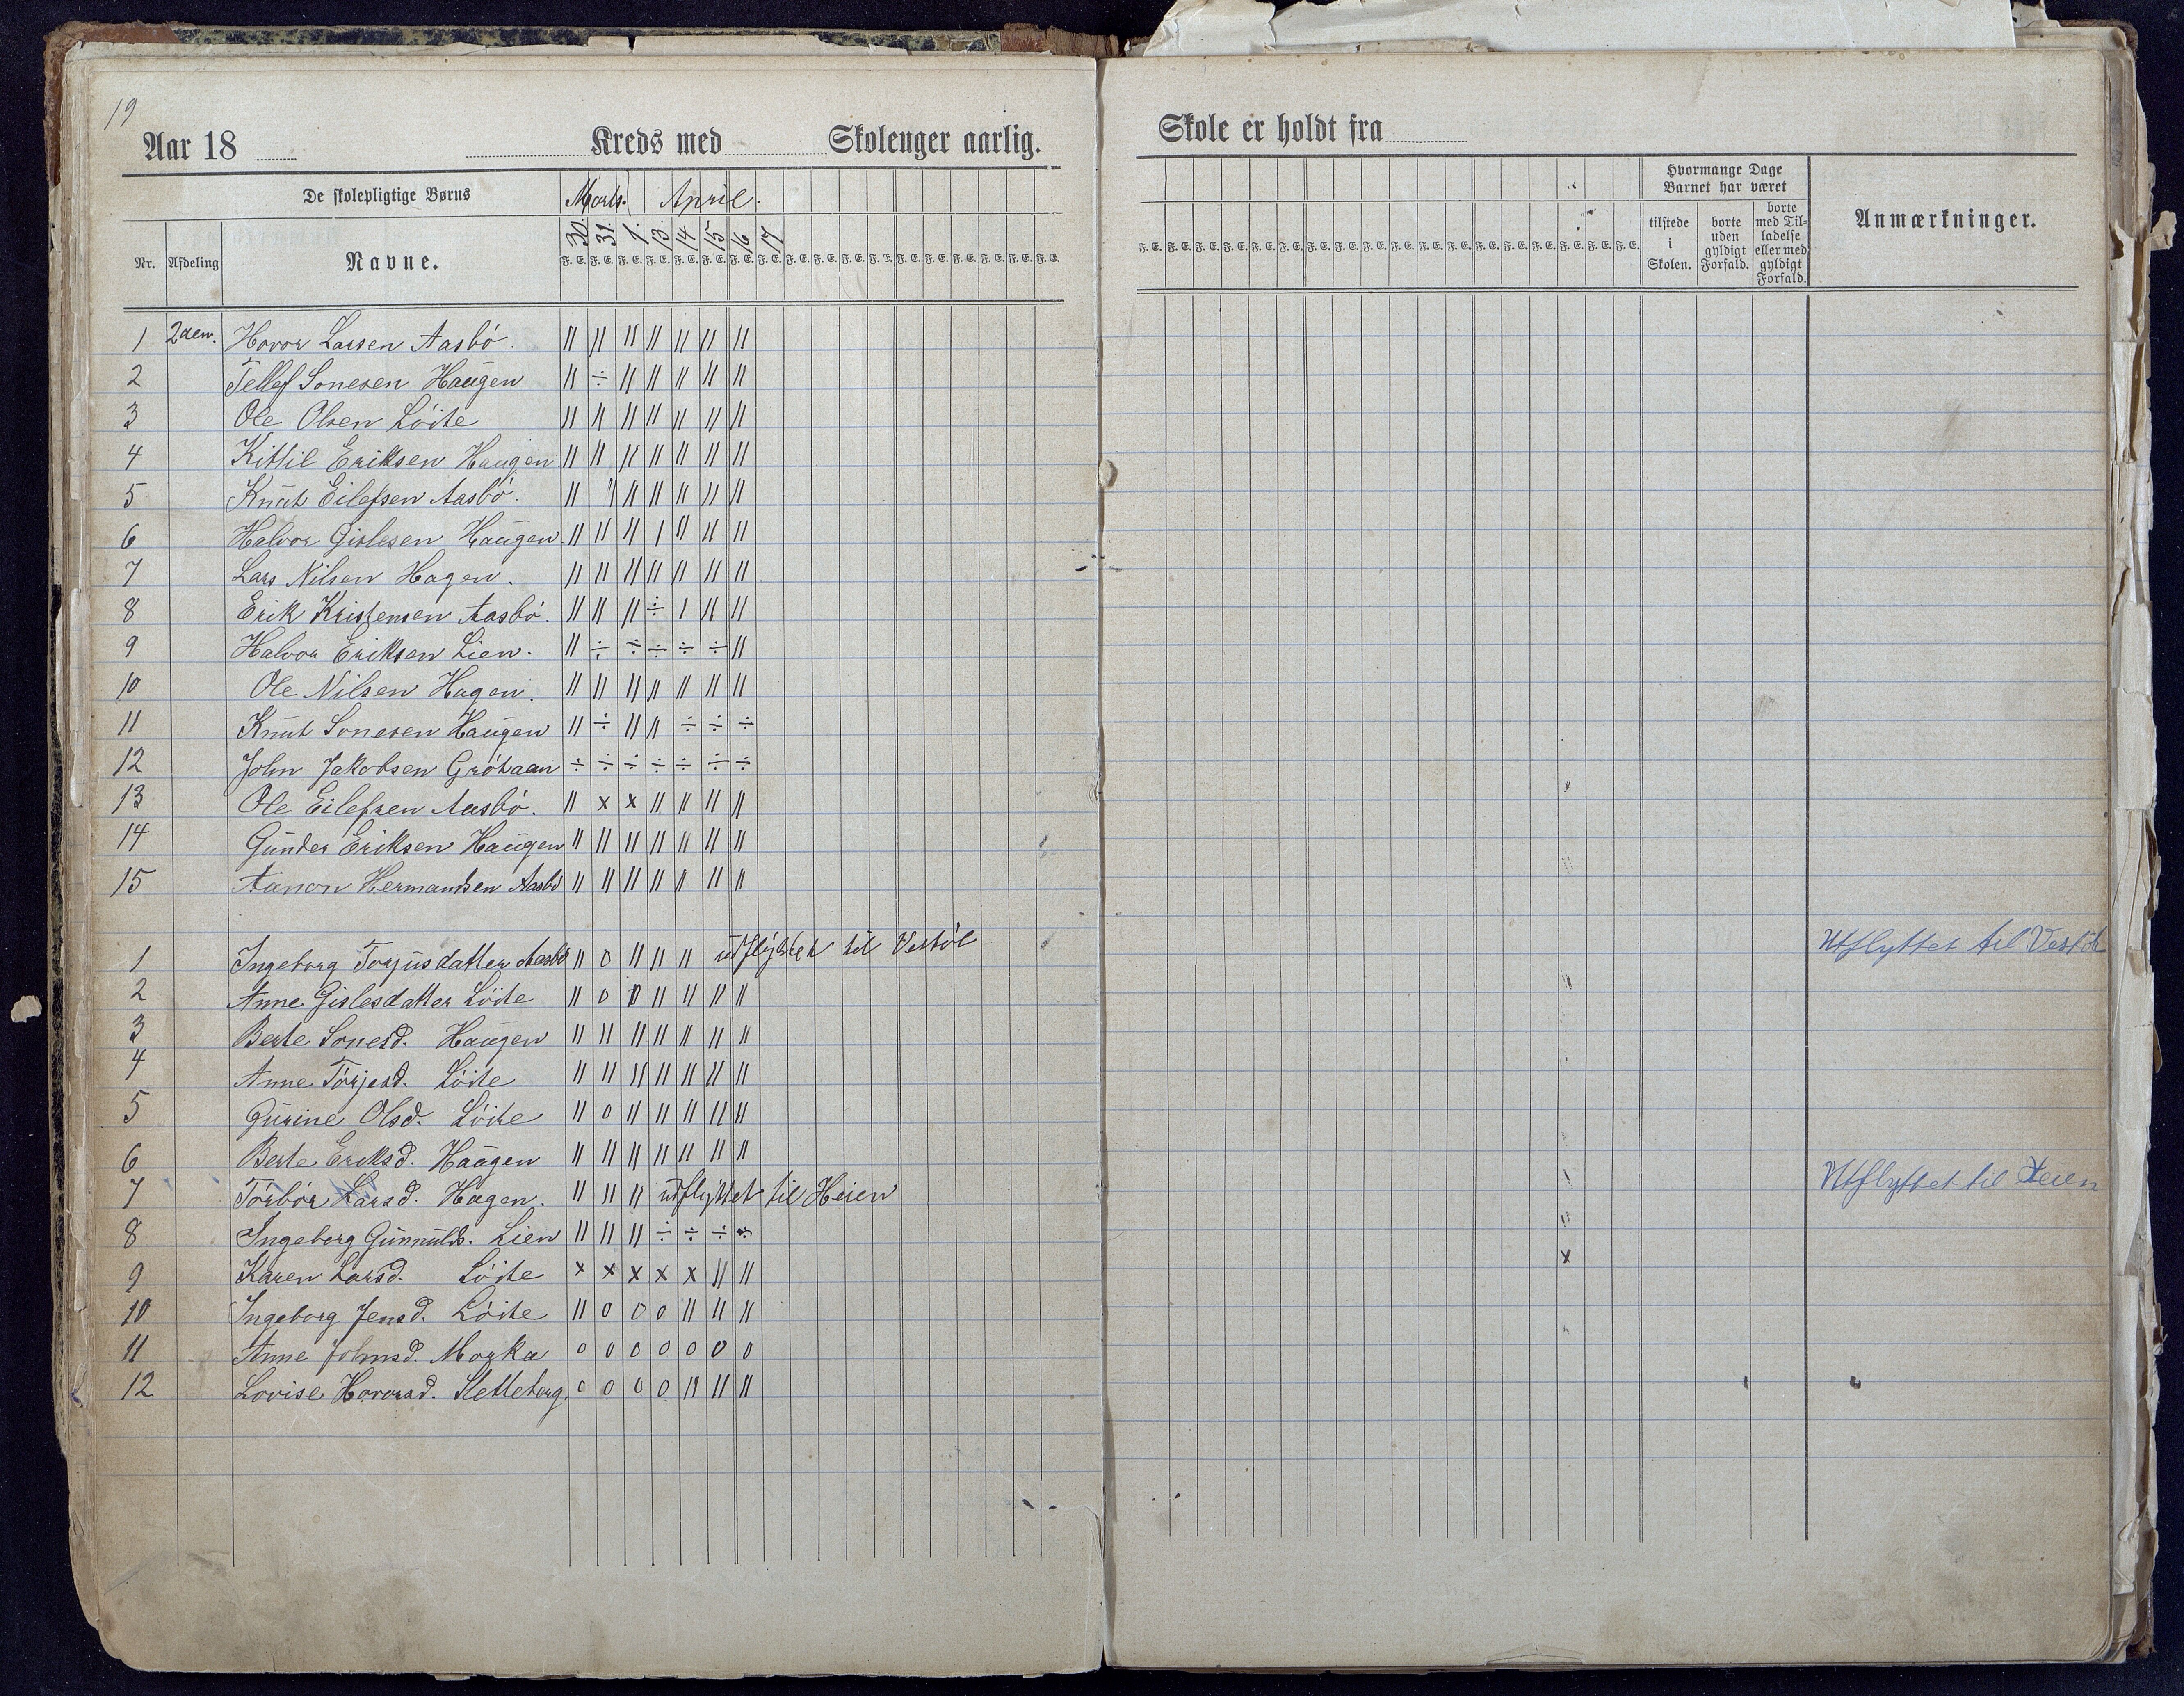 19
Aar 18 Kreds med Skolenger aarlig.
De skolepligtige Børns Marts. April.
Nr. Afdeling Navne. 30. 31. 1. 13. 14 15. 16 17
F. E. F. E. F. E. F. E. F. E. F. E. F. E. F. E. F. E. F. E. F. E. F. T. F. E. F. E. F. E. F. E. F. E. F. E.
1 2den. Hovor Larsen Aasbö. || || || || || || ||
2 Tellef Sonesen Haugen || ÷ || || || || ||
3 Ole Olsen Löite || || || || || || ||
4 Kittil Eriksen Haugen || || || || || || ||
5 Knut Eilefsen Aasbö. || || || || || || ||
6 Halvor Gislesen Haugen || || || | || || ||
7 Lars Nilsen Hagen. || || || || || || ||
8 Erik Kristensen Aasbö. || || || ÷ | || ||
9 Halvor Eriksen Lien. || ÷ ÷ ÷ ÷ ÷ ||
10 Ole Nilsen Hagen. || || || || || || ||
11 Knut Sonesen Haugen || ÷ || || ÷ ÷ ÷
12 John Jakobsen Gröhaan ÷ ÷ ÷ ÷ ÷ ÷ ÷
13 Ole Eilefsen Aasbö. || x x || || || ||
14 Gunder Eriksen Haugen || || || || || || ||
15 Aanon Hermandsen Aasbö || || || || || || ||
1 Ingeborg Torjusdatter Aasbö || 0 || || || udflyttet til Vestöl
2 Anne Gislesdatter Löite || 0 || || || || ||
3 Berte Sonesd. Haugen || || || || || || ||
4 Anne Törjesd. Löite || || || || || || ||
5 Gurine Olsd. Löite || 0 || || || || ||
6 Berte Eriksd. Haugen || || || || || || ||
7 Törbör Larsd. Hagen. || || || udflyttet til Heien
8 Ingeborg Gunnulds. Lien || || || ÷ ÷ ÷ ÷
9 Karen Larsd. Löite x x x x x || ||
10 Ingeborg Jensd. Löite || 0 0 0 || || ||
11 Anne Johnsd. Morka 0 0 0 0 0 0 0
12 Lovise Hovorsd. Sletteberg. 0 0 0 0 || || ||
Skole er holdt fra
Hvormange Dage
Barnet har været
tilstede i Skolen. borte uden gyldigt Forfald. borte med Tilladelse eller med gyldigt Forfald. Anmærkninger.
F. E. F. E. F. E. F. E. F. E. F. E. F. E. F. E. F. E. F. E. F. E. F. E. F. E. F. E. F. E. F. E. F. E. F. E.
Utflyttet til Vestöl
Utflyttet til Heien
x